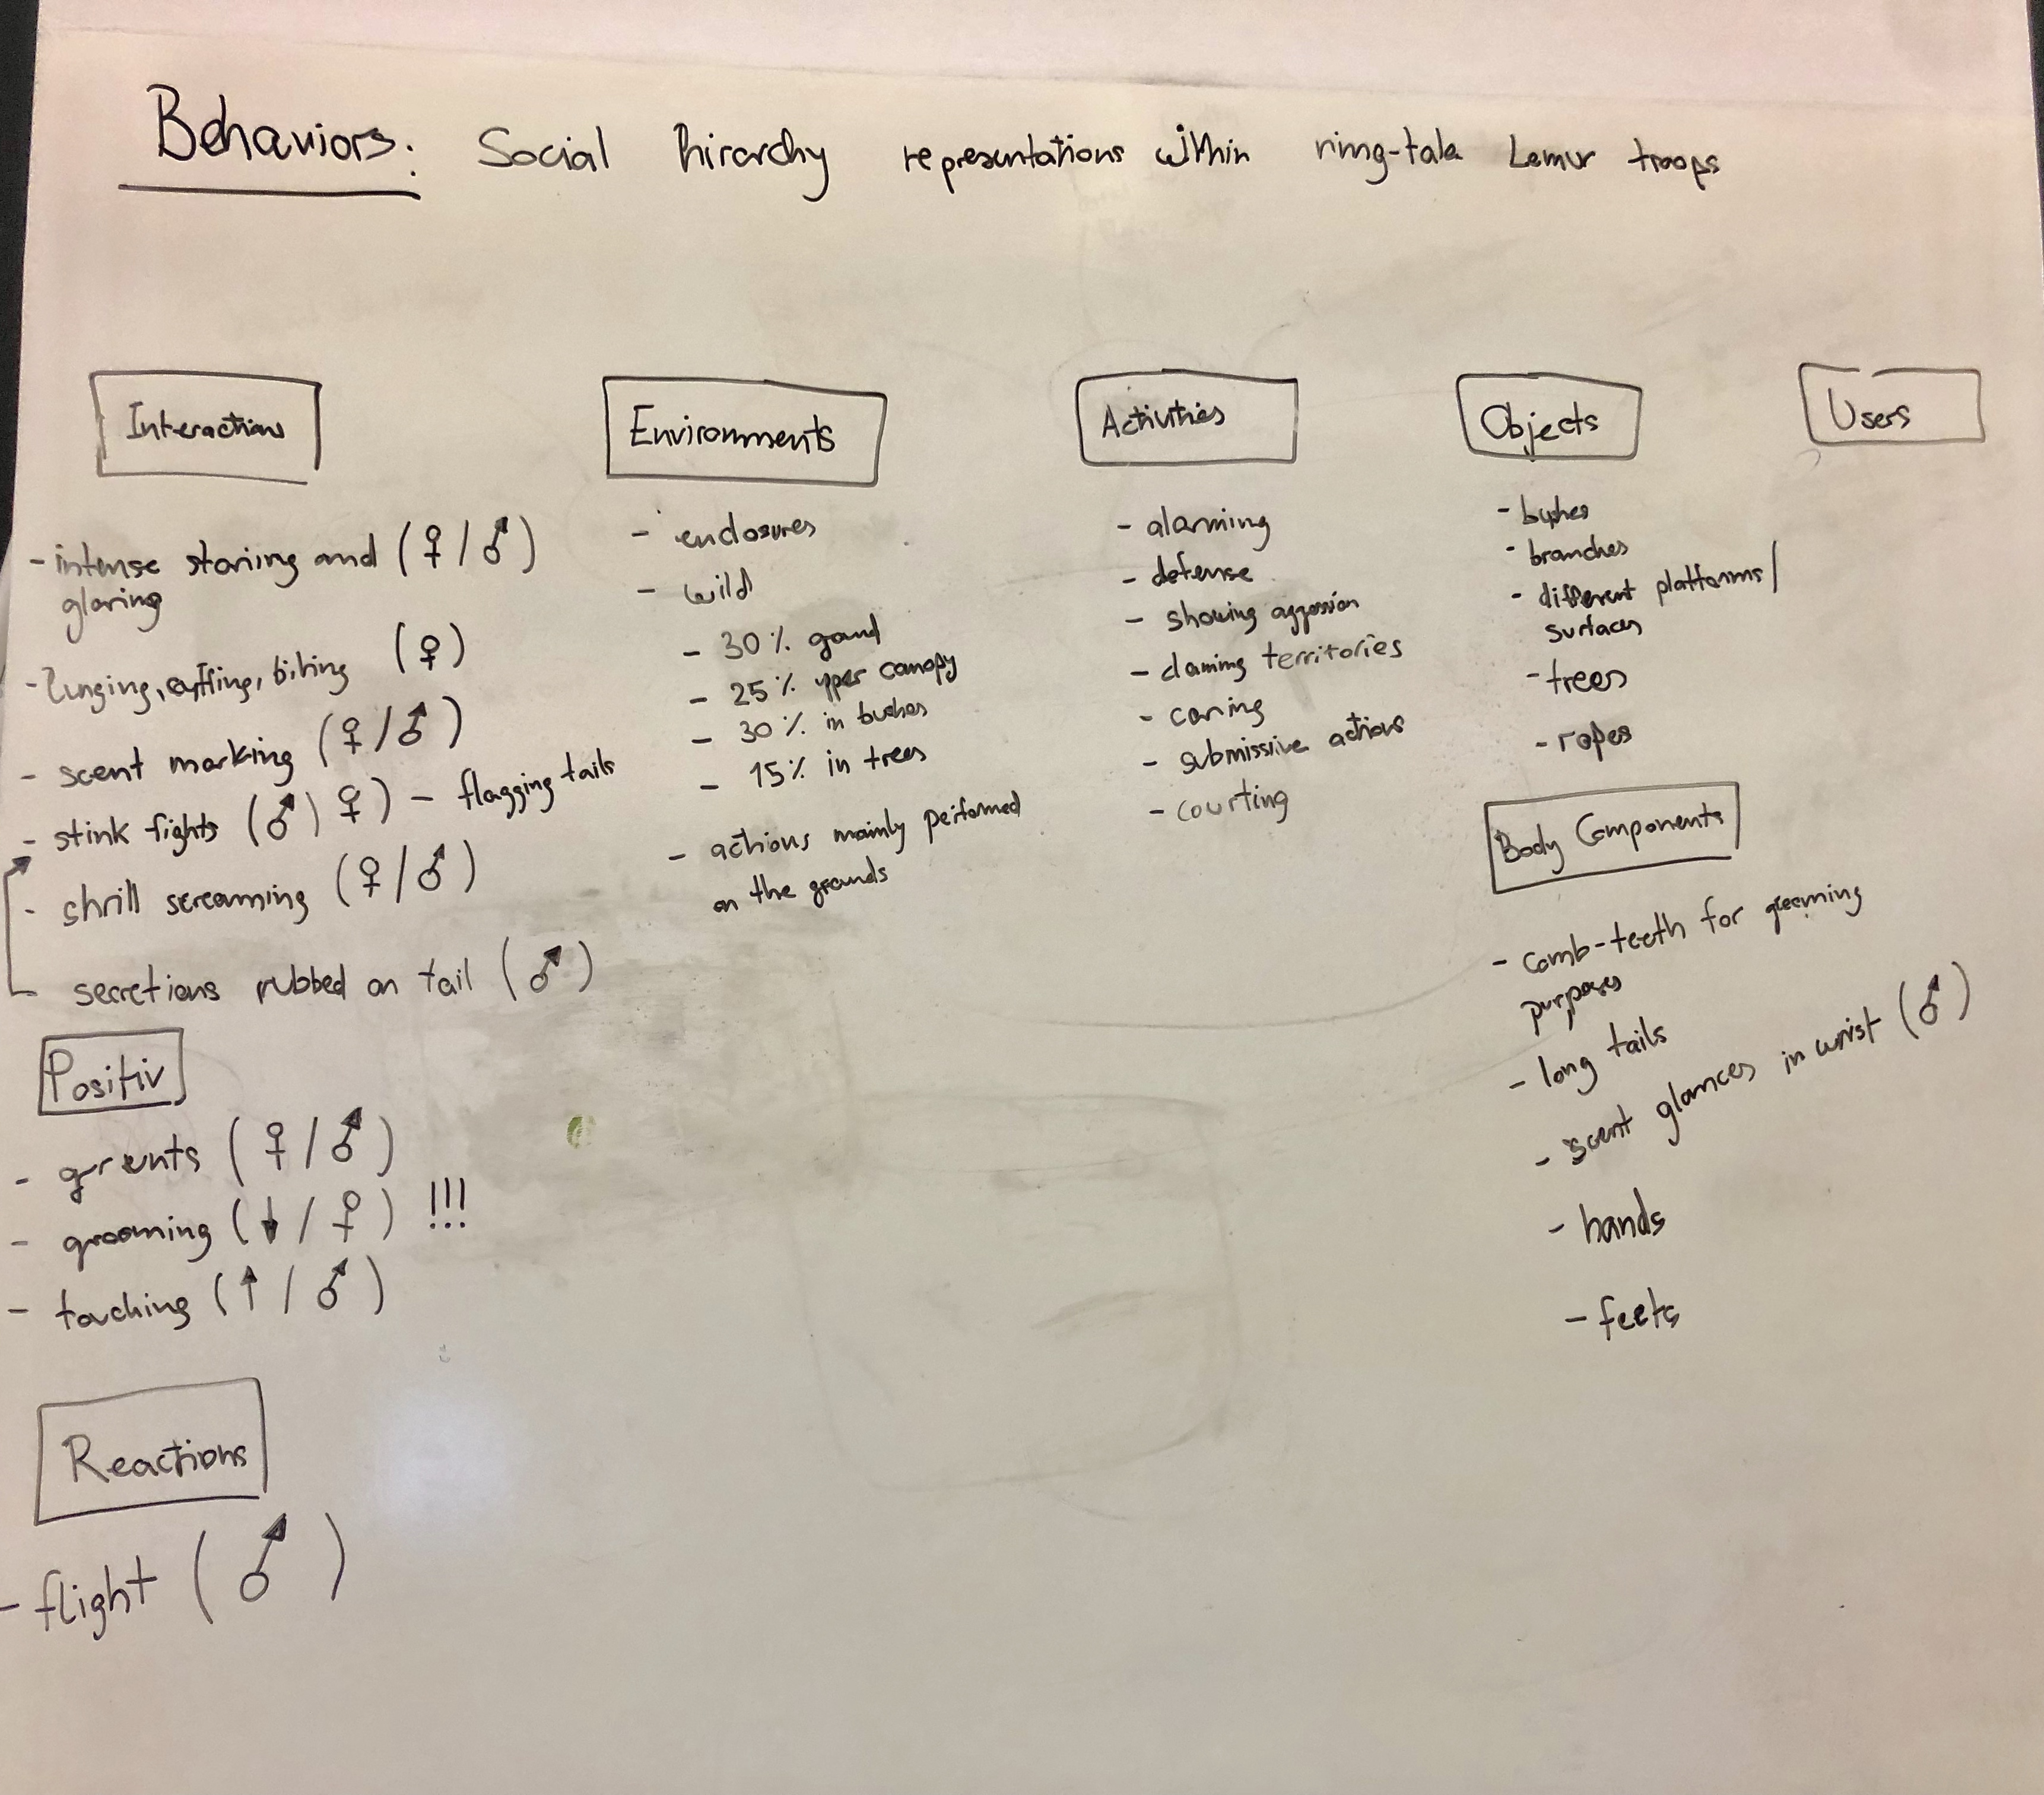 Behaviors: Social hirarchy representations within ring-tale Lemur troops
Interactions
- intense staring and (♀/♂)
glaring
- lunging, cuffing, biting (♀)
- scent marking (♀/♂)
- stink fights (♂) ♀) - flagging tails
- shrill screaming (♀/♂)
secretions rubbed on tail (♂)
Positiv
- grunts (♀/♂)
- grooming (↓/♀) !!!
- touching (↑/♂)
Reactions
- flight (♂)
Environments
- enclosures
- wild
- 30% ground
- 25% upper canopy
- 30% in bushes
- 15% in trees
- actions mainly performed
on the grounds
Activities
- alarming
- defense
- showing aggression
- claming territories
- caring
- submissive actions
- courting
Objects
- bushes
- branches
- different platforms/
surfaces
- trees
- ropes
Body Components
- comb-teeth for grooming
purposes
- long tails
- scent glances in wrist (♂)
- hands
- feets
Users